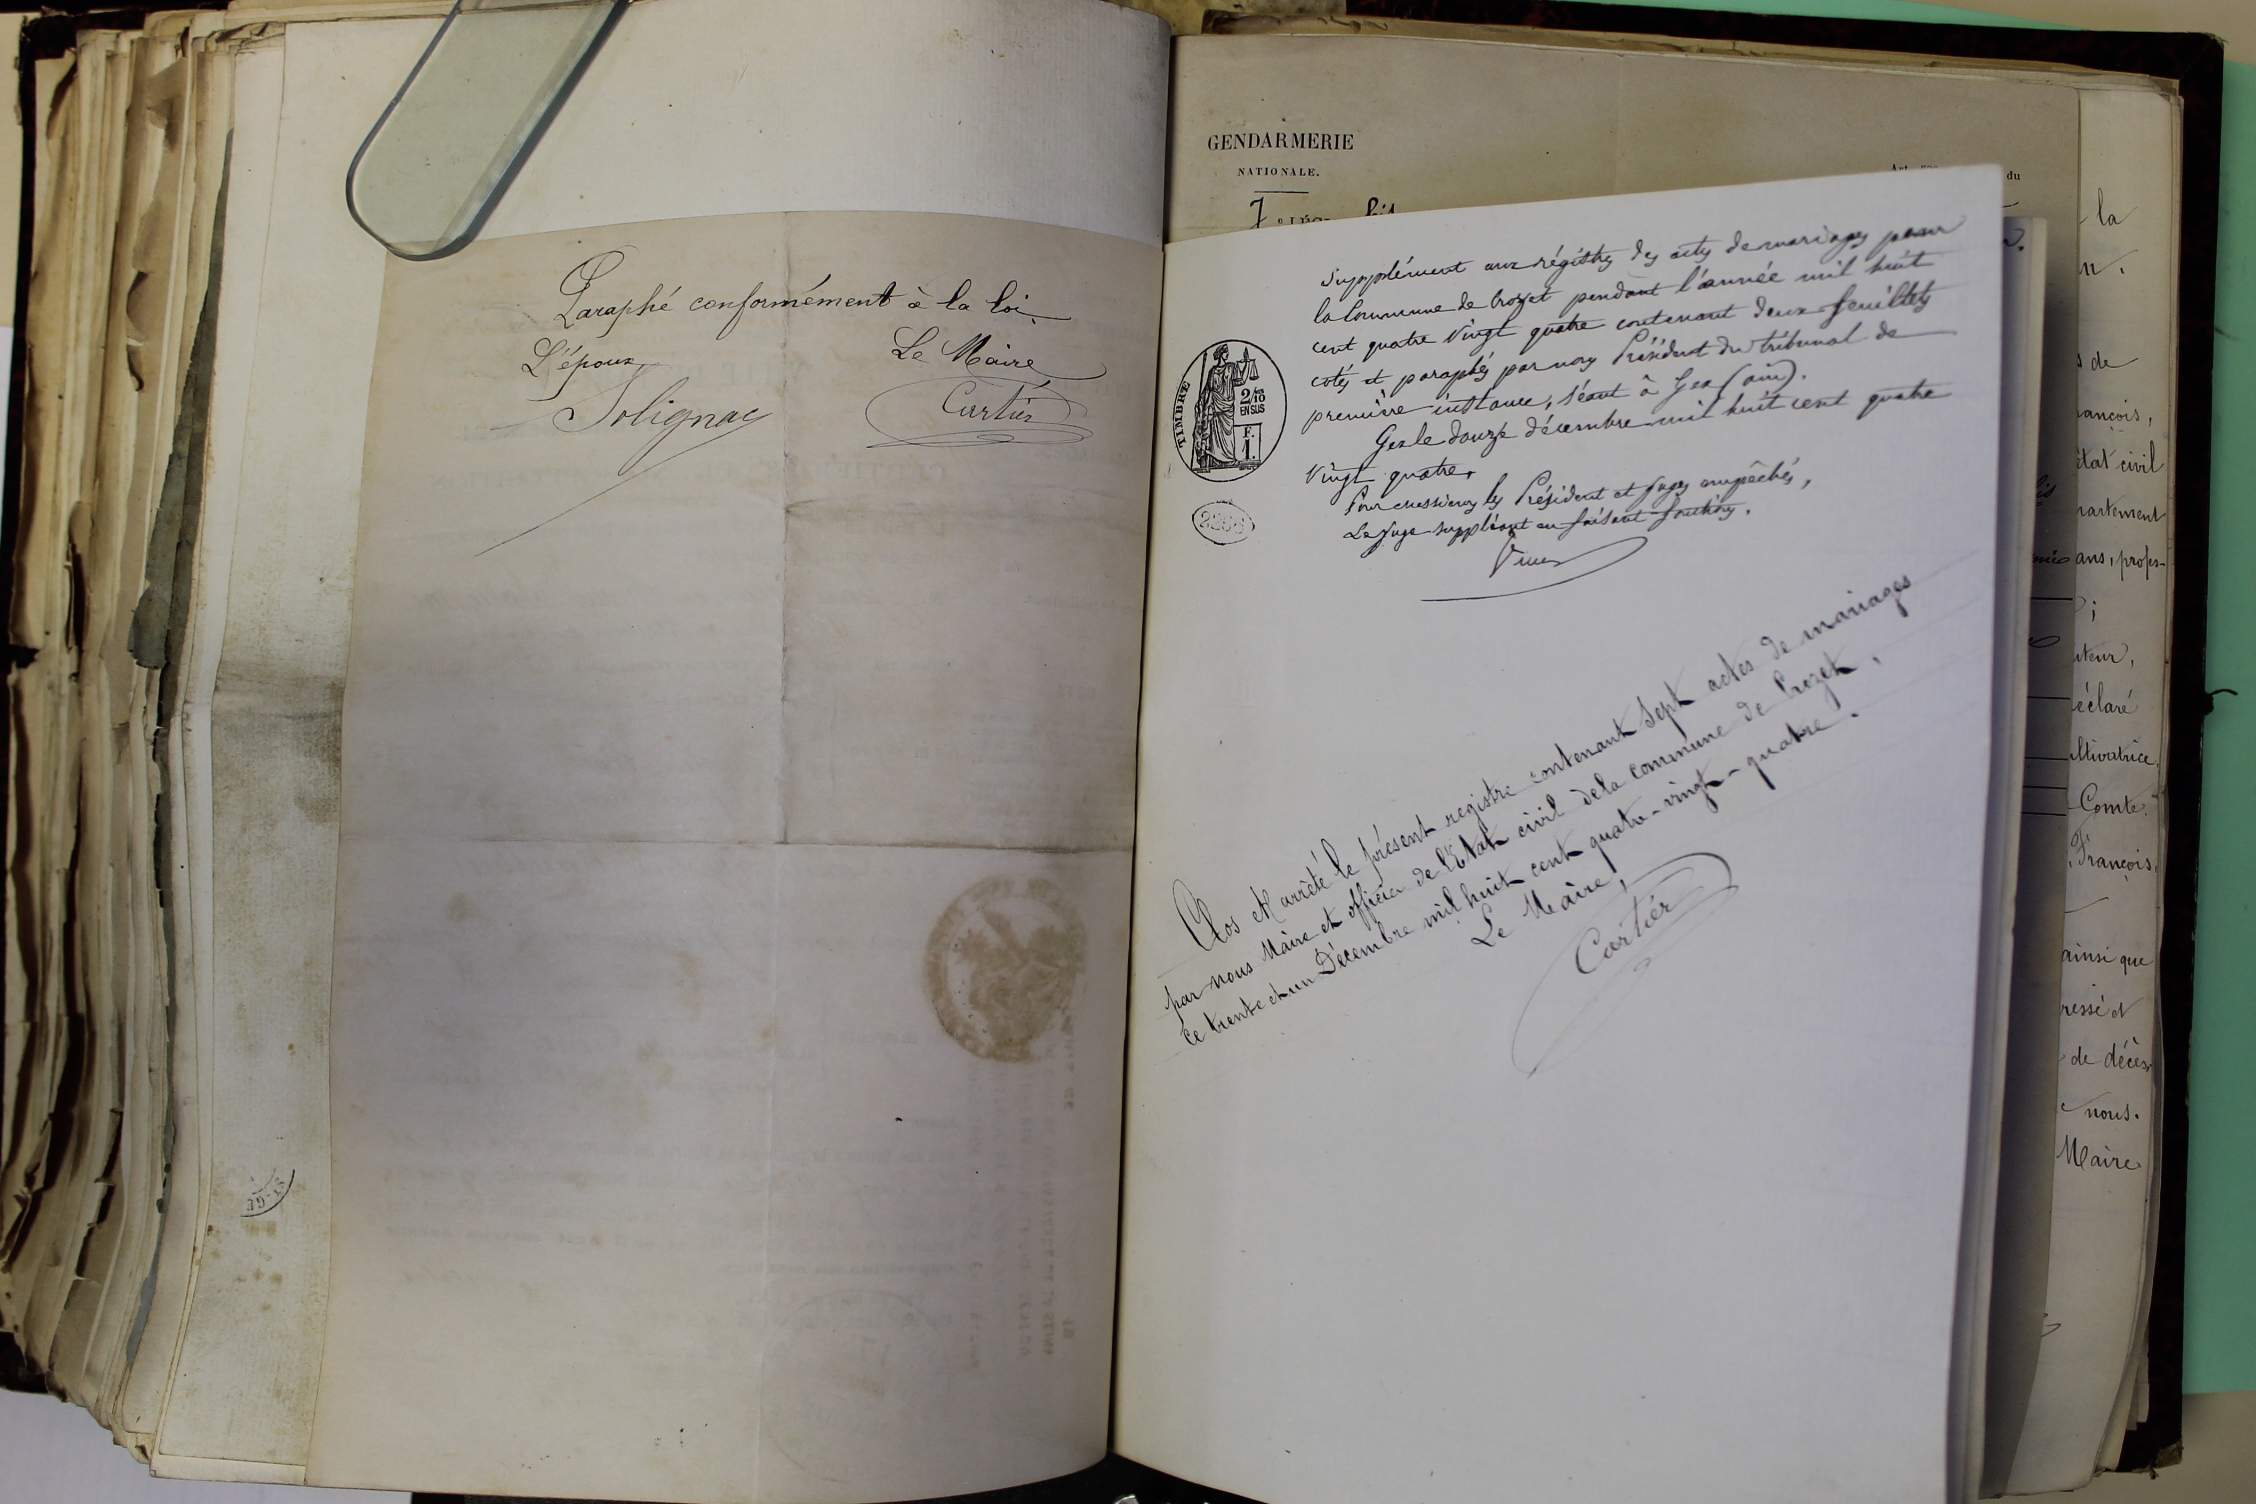 Paraphé conformément à la loi.
L'époux,
Le Maire
Solignac
Cartier
ST-GE
GENDARMERIE
NATIONALE.
7e
du
Supplément aux régistres des actes de mariages pour
la Commune de Crozet pendant l'année mil huit
cent quatre vingt quatre contenant deux feuillets
cotés et paraphés par nous Président du tribunal de
première instance, séant à Gex (ain).
Gex le douze décembre mil huit cent quatre
vingt quatre.
Pour messieurs les Président et juges empêchés,
Le juge suppléant en faisant fonctions.
TIMBRE
2/10
EN SUS
F.
1.
Clos et arrêté le présent registre contenant sept actes de mariages
par nous Maire et officier de l'Etat civil de la commune de Crozet,
ce trente et un Décembre mil huit cent quatre-vingt-quatre.
Le Maire,
Cartier
la
n.
de
rançois,
état civil
partement
ans, profes-
;
uteur,
éclaré
ultivatrice
Comte.
François,
ainsi que
ressé et
de décès
nous.
Maire